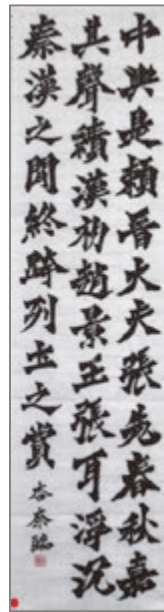 中興是賴晋大夫張老春秋嘉
其聲績漢初趙景王張耳浮沉
秦漢之間終跨列土之賞 泰臨